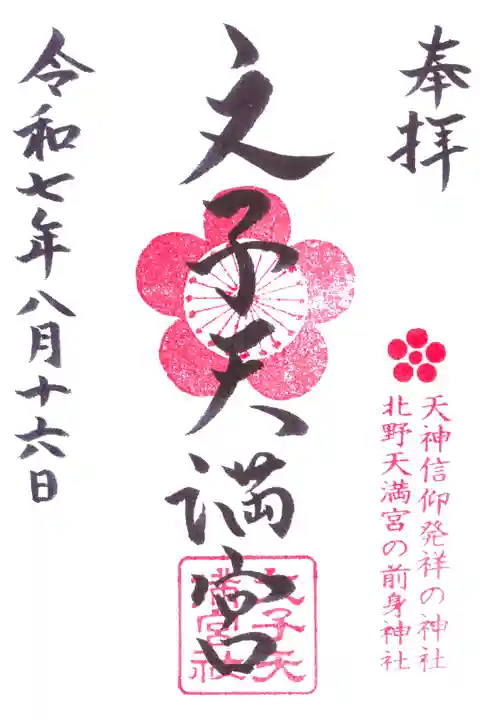 奉拝
天神信仰発祥の神社
北野天満宮の前身神社
文子天満宮
文子天
満宮社
令和七年八月十六日